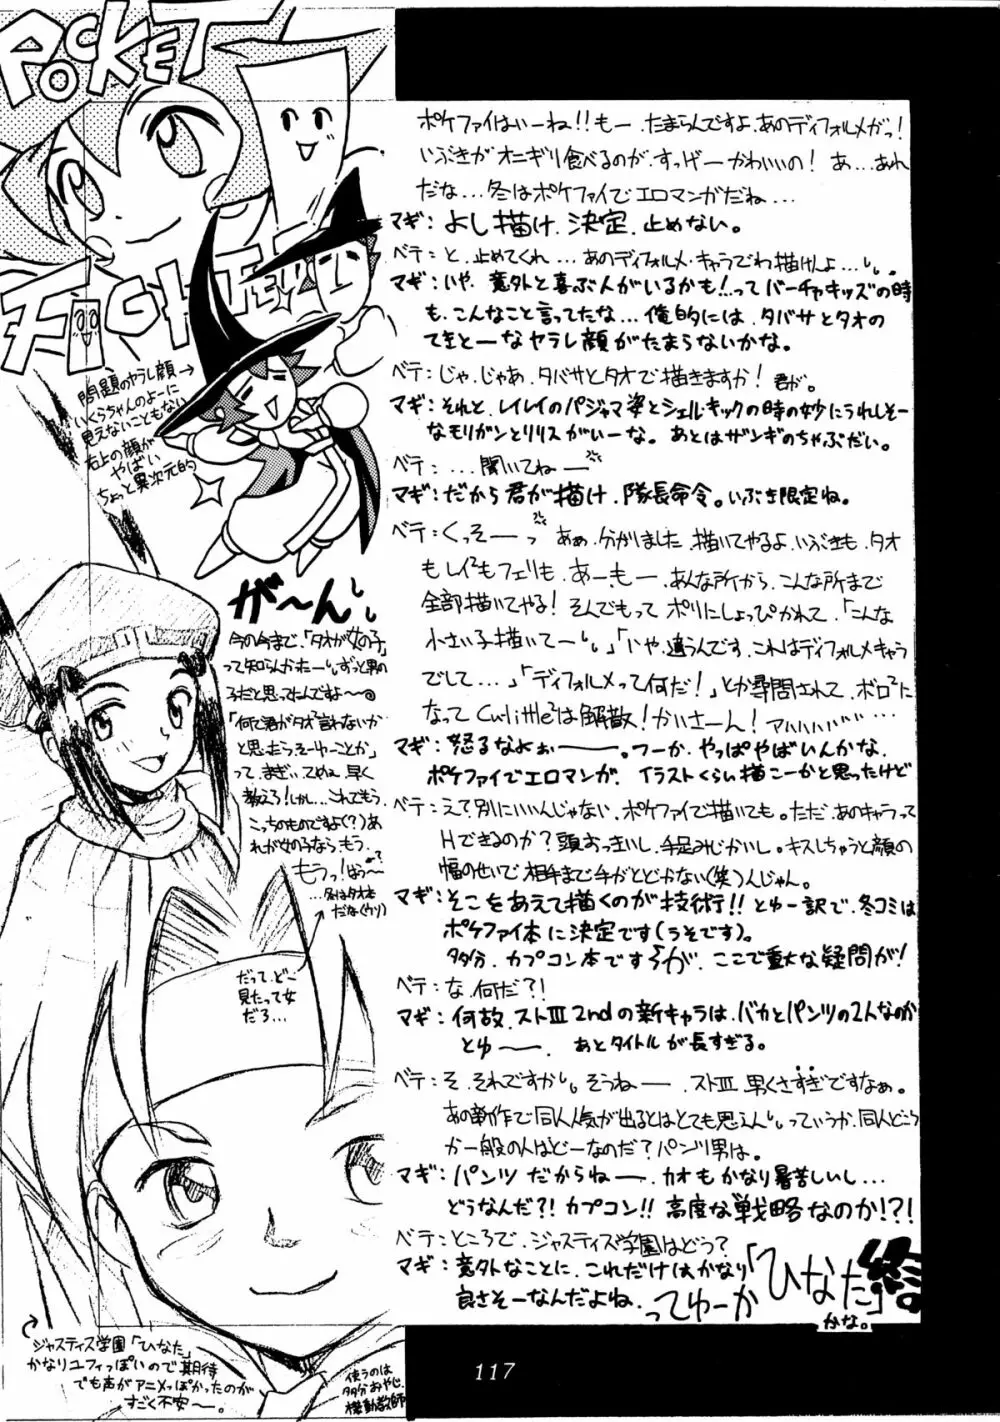 POCKET
FIGHTER
ポケファイはいーね!!もー、たまらんですよ、あのディフォルメがっ!
いぶきがオニギリ食べるのが、すっげーかわいいの! あ…あれ
だな…冬はポケファイでエロマンガだね…
マギ:よし描け、決定、止めない。
ベテ:と、止めてくれ…あのディフォルメ・キャラでわ描けしょ…
マギ:いや、意外と喜ぶ人がいるかも!…ってバーチャキッズの時
も、こんなこと言ってたな…俺的には、タバサとタオの
てきとーなヤラレ顔がたまらないかな。
ベテ:じゃ、じゃあ、タバサとタオで描きますか!君が。
マギ:それと、レイレイのパジャマ姿とシェルキックの時の妙にうれしそー
なモリガンとリリスがいーな。あとはザンギのちゃぶだい。
ベテ:…聞いてねー
マギ:だから君が描け、隊長命令。いぶき限定ね。
ベテ:くっそーっ あぁ、分かりました、描いてやるよ、いぶきも、タオ
もレイ²もフェリも、あーもー、あんな所から、こんな所まで
全部描いてやる!そんでもって ポリにしょっぴかれて、「こんな
小さい子描いてーい」「いや、違うんです、これはディフォルメキャラ
でして…」「ディフォルメって何だ!」とか尋問されて、ボロ²に
なってCu-little²は解散!かいさーん!アハハハハハ……
マギ:怒るなよぉー。つーか、やっぱやばいんかな、
ポケファイでエロマンガ、イラストくらい描こーかと思ったけど
ベテ:え?別にいいんじゃない、ポケファイで描いても。ただ、あのキャラって
Hできるのか?頭おっきいし、手足みじかいし。キスしちゃうと顔の
幅のせいで相手まで手がとどかない(笑)んじゃん。
マギ:そこをあえて描くのが技術!!とゆー訳で、冬コミは
ポケファイ本に決定です(うそです)。
多分、カプコン本ですうが、ここで重大な疑問が!
ベテ:な、何だ?!
マギ:何故、ストⅢ2ndの新キャラは、バカとパンツの2人なのか
とゆー、あとタイトルが長すぎる。
ベテ:そ、それですかい、そうねー、ストⅢ、早くさすぎですなぁ。
あの新作で同人人気が出るとはとても思えんいっていうか、同人どころ
か一般の人はどーなのだ?パンツ男は。
マギ:パンツだからねー、カオもかなり暑苦しいし…
どうなんだ?!カプコン!!高度な戦略なのか!?!
ベテ:ところで、ジャスティス学園はどう?
マギ:意外なことに、これだけはかなり
良さそーなんだよね、ってゆーか「ひなた」
かな。
終
問題のヤラレ顔→
いくらちゃんのよーに
見えないこともない
右上の顔が
やばい
ちょっと異次元的
が〜ん
今の今まで、「タオが女の子」
って知らんかったー、ずっと男の
子だと思ってたんですよー
「何で君がタオ²言わないか
と思たらそーゆーことか」
って、まぎぃてめぇ、早く
教えろ!しかし…これでもう、
こっちのものですよ(?)あ
れが女の子なら、もう、
もうっ!はうー
…冬はタオ本
だな(ウソ)
だって、どこ
見たって女
だろ…
ジャスティス学園「ひなた」
かなりユフィっぽいので期待
でも声がアニメっぽかったのが
すごく不安ー。
使うのは
多分おやじ、
機動教師
117